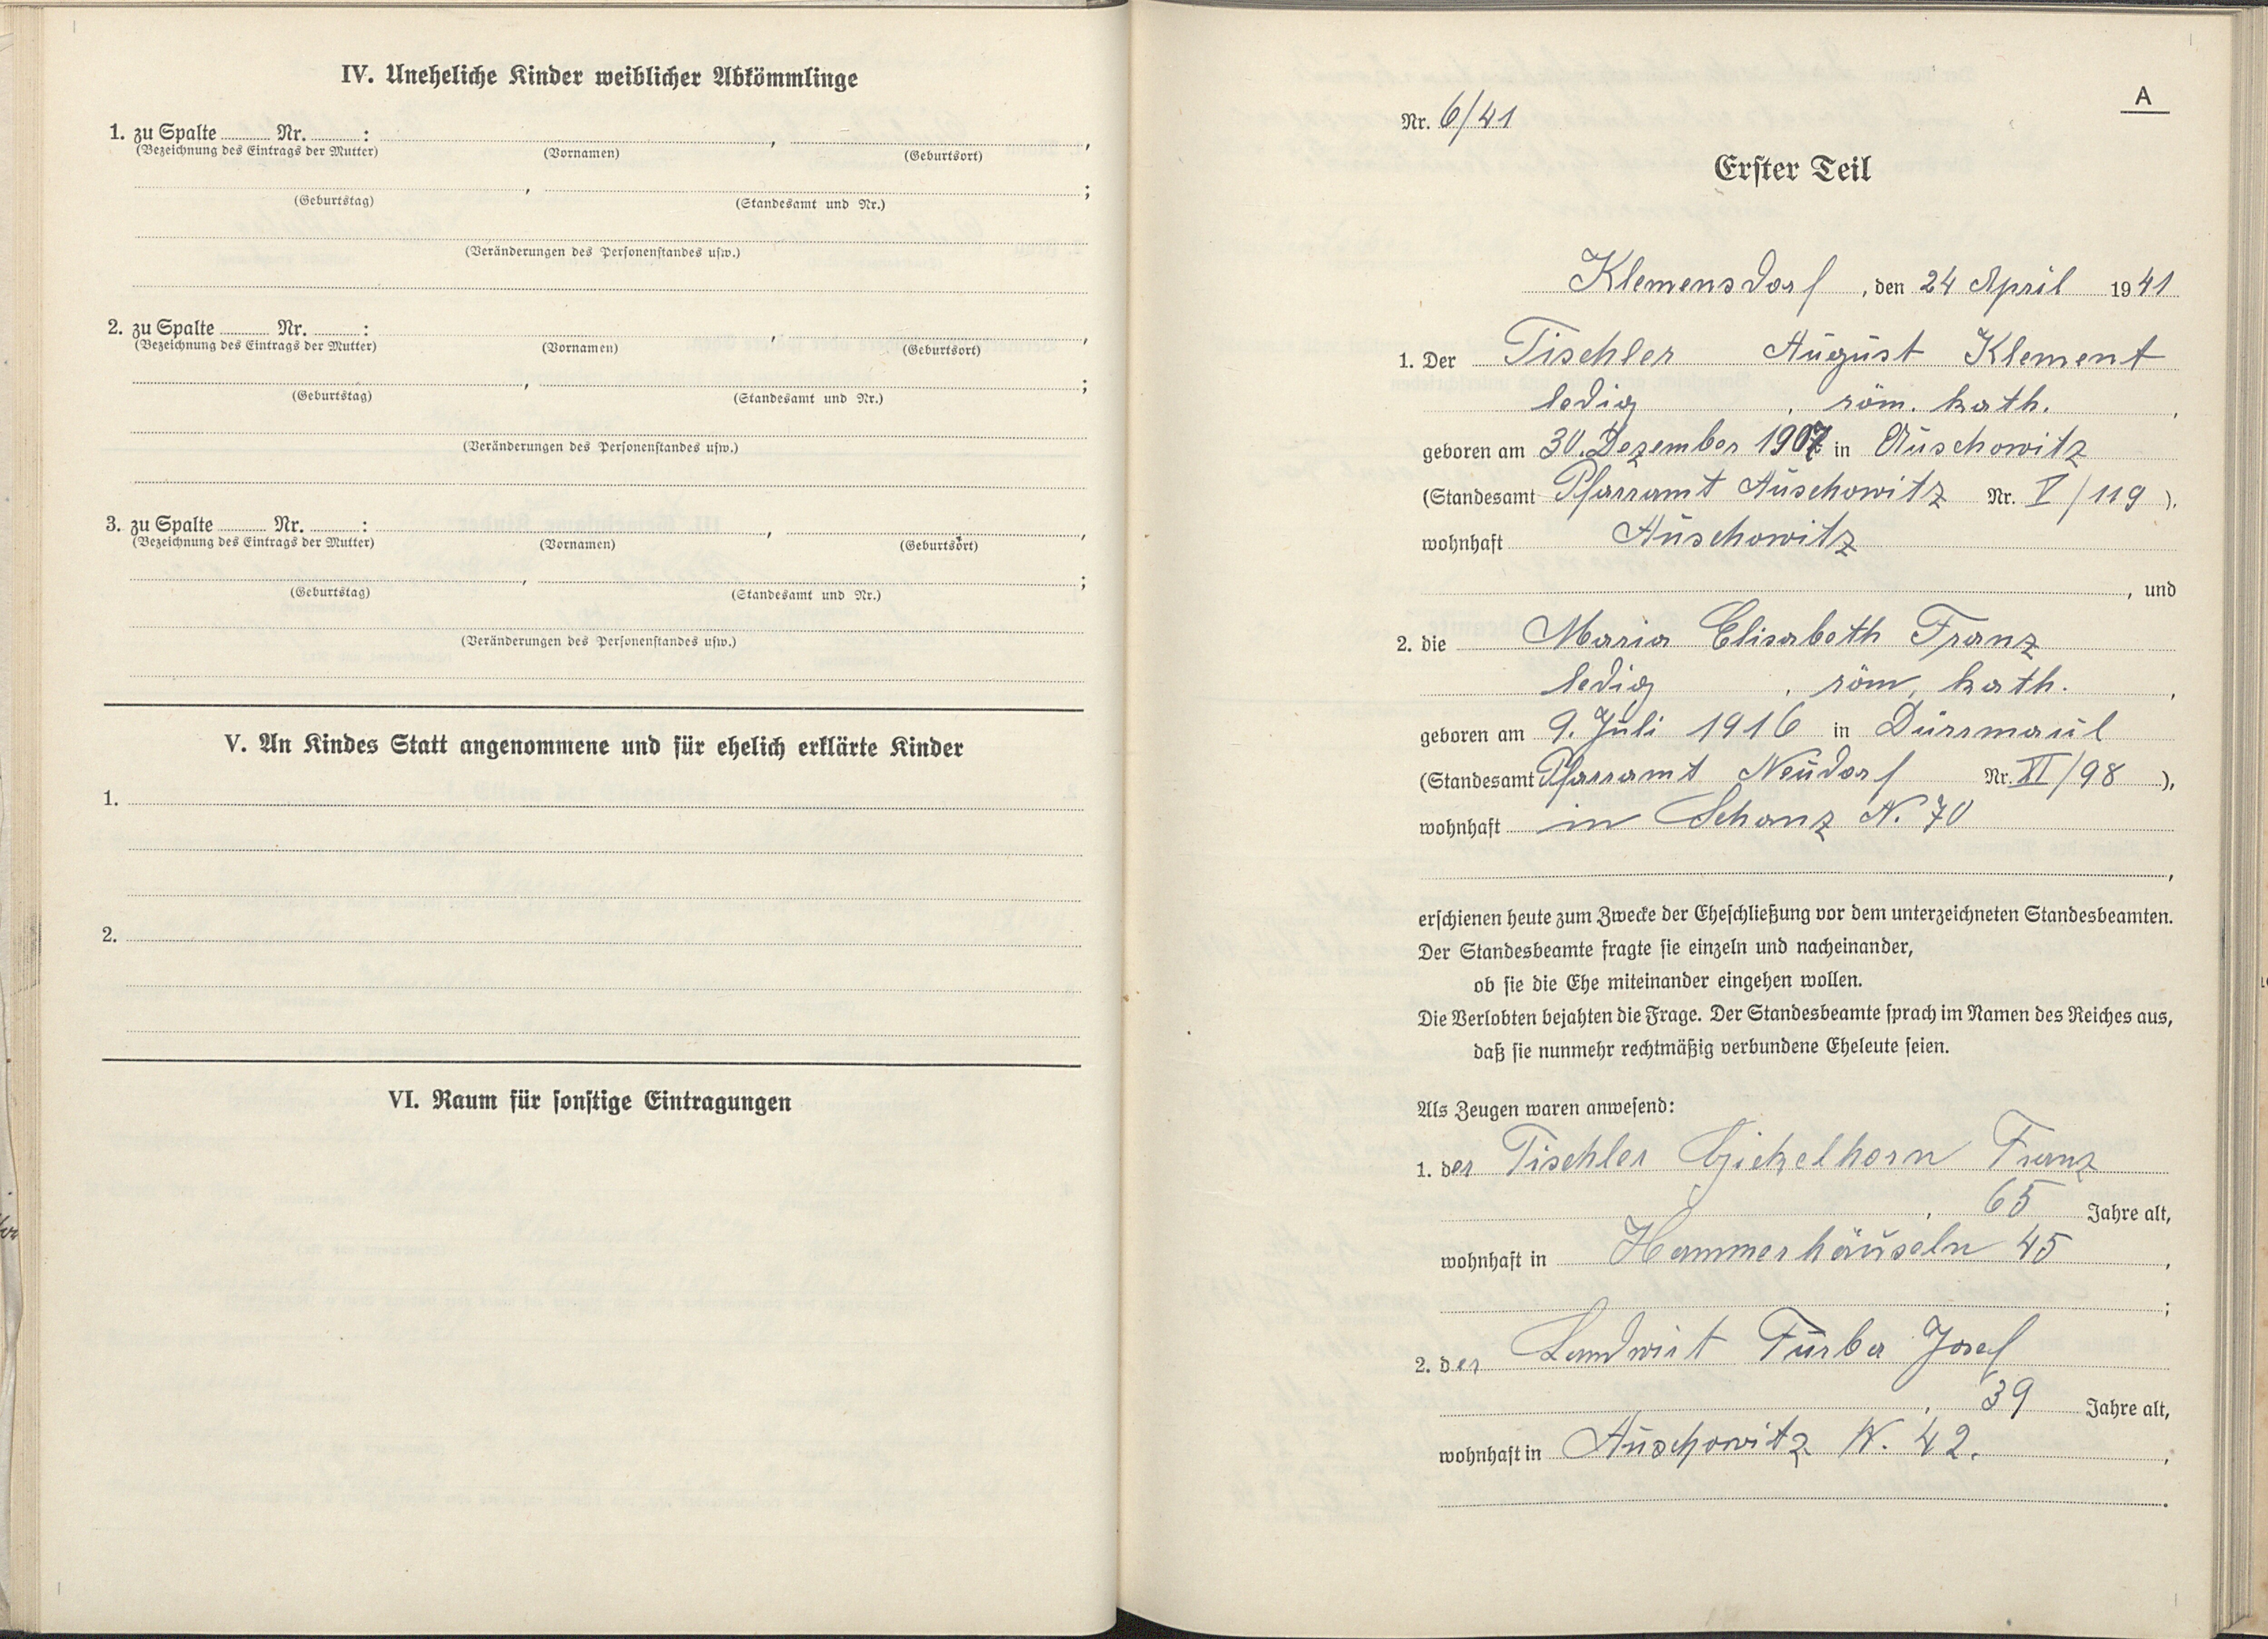 IV. Uneheliche Kinder weiblicher Abkömmlinge
1. zu Spalte ........ Nr. ........ : ........ , ........ ,
(Bezeichnung des Eintrags der Mutter) (Vornamen) (Geburtsort)
........ , ........ ;
(Geburtstag) (Standesamt und Nr.)
(Veränderungen des Personenstandes usw.)
2. zu Spalte ........ Nr. ........ : ........ , ........ ,
(Bezeichnung des Eintrags der Mutter) (Vornamen) (Geburtsort)
........ , ........ ;
(Geburtstag) (Standesamt und Nr.)
(Veränderungen des Personenstandes usw.)
3. zu Spalte ........ Nr. ........ : ........ , ........ ,
(Bezeichnung des Eintrags der Mutter) (Vornamen) (Geburtsort)
........ , ........ ;
(Geburtstag) (Standesamt und Nr.)
(Veränderungen des Personenstandes usw.)
V. An Kindes Statt angenommene und für ehelich erklärte Kinder
1.
2.
VI. Raum für sonstige Eintragungen
A
Nr. 6/41
Erster Teil
Klemensdorf, den 24 April 1941
1. Der Tischler August Klement
ledig, röm. kath.,
geboren am 30. Dezember 1907 in Auschowitz
(Standesamt Pfarramt Auschowitz Nr. V/119),
wohnhaft Auschowitz
, und
2. die Maria Elisabeth Franz
ledig, röm. kath.,
geboren am 9. Juli 1916 in Dürrmaul
(Standesamt Pfarramt Neudorf Nr. XI/98),
wohnhaft in Schanz N. 70
,
erschienen heute zum Zwecke der Eheschließung vor dem unterzeichneten Standesbeamten.
Der Standesbeamte fragte sie einzeln und nacheinander,
ob sie die Ehe miteinander eingehen wollen.
Die Verlobten bejahten die Frage. Der Standesbeamte sprach im Namen des Reiches aus,
daß sie nunmehr rechtmäßig verbundene Eheleute seien.
Als Zeugen waren anwesend:
1. der Tischler Gickelhorn Franz
, 65 Jahre alt,
wohnhaft in Hammerhäuseln 45,
;
2. der Landwirt Turba Josef
, 39 Jahre alt,
wohnhaft in Auschowitz N. 42.,
.